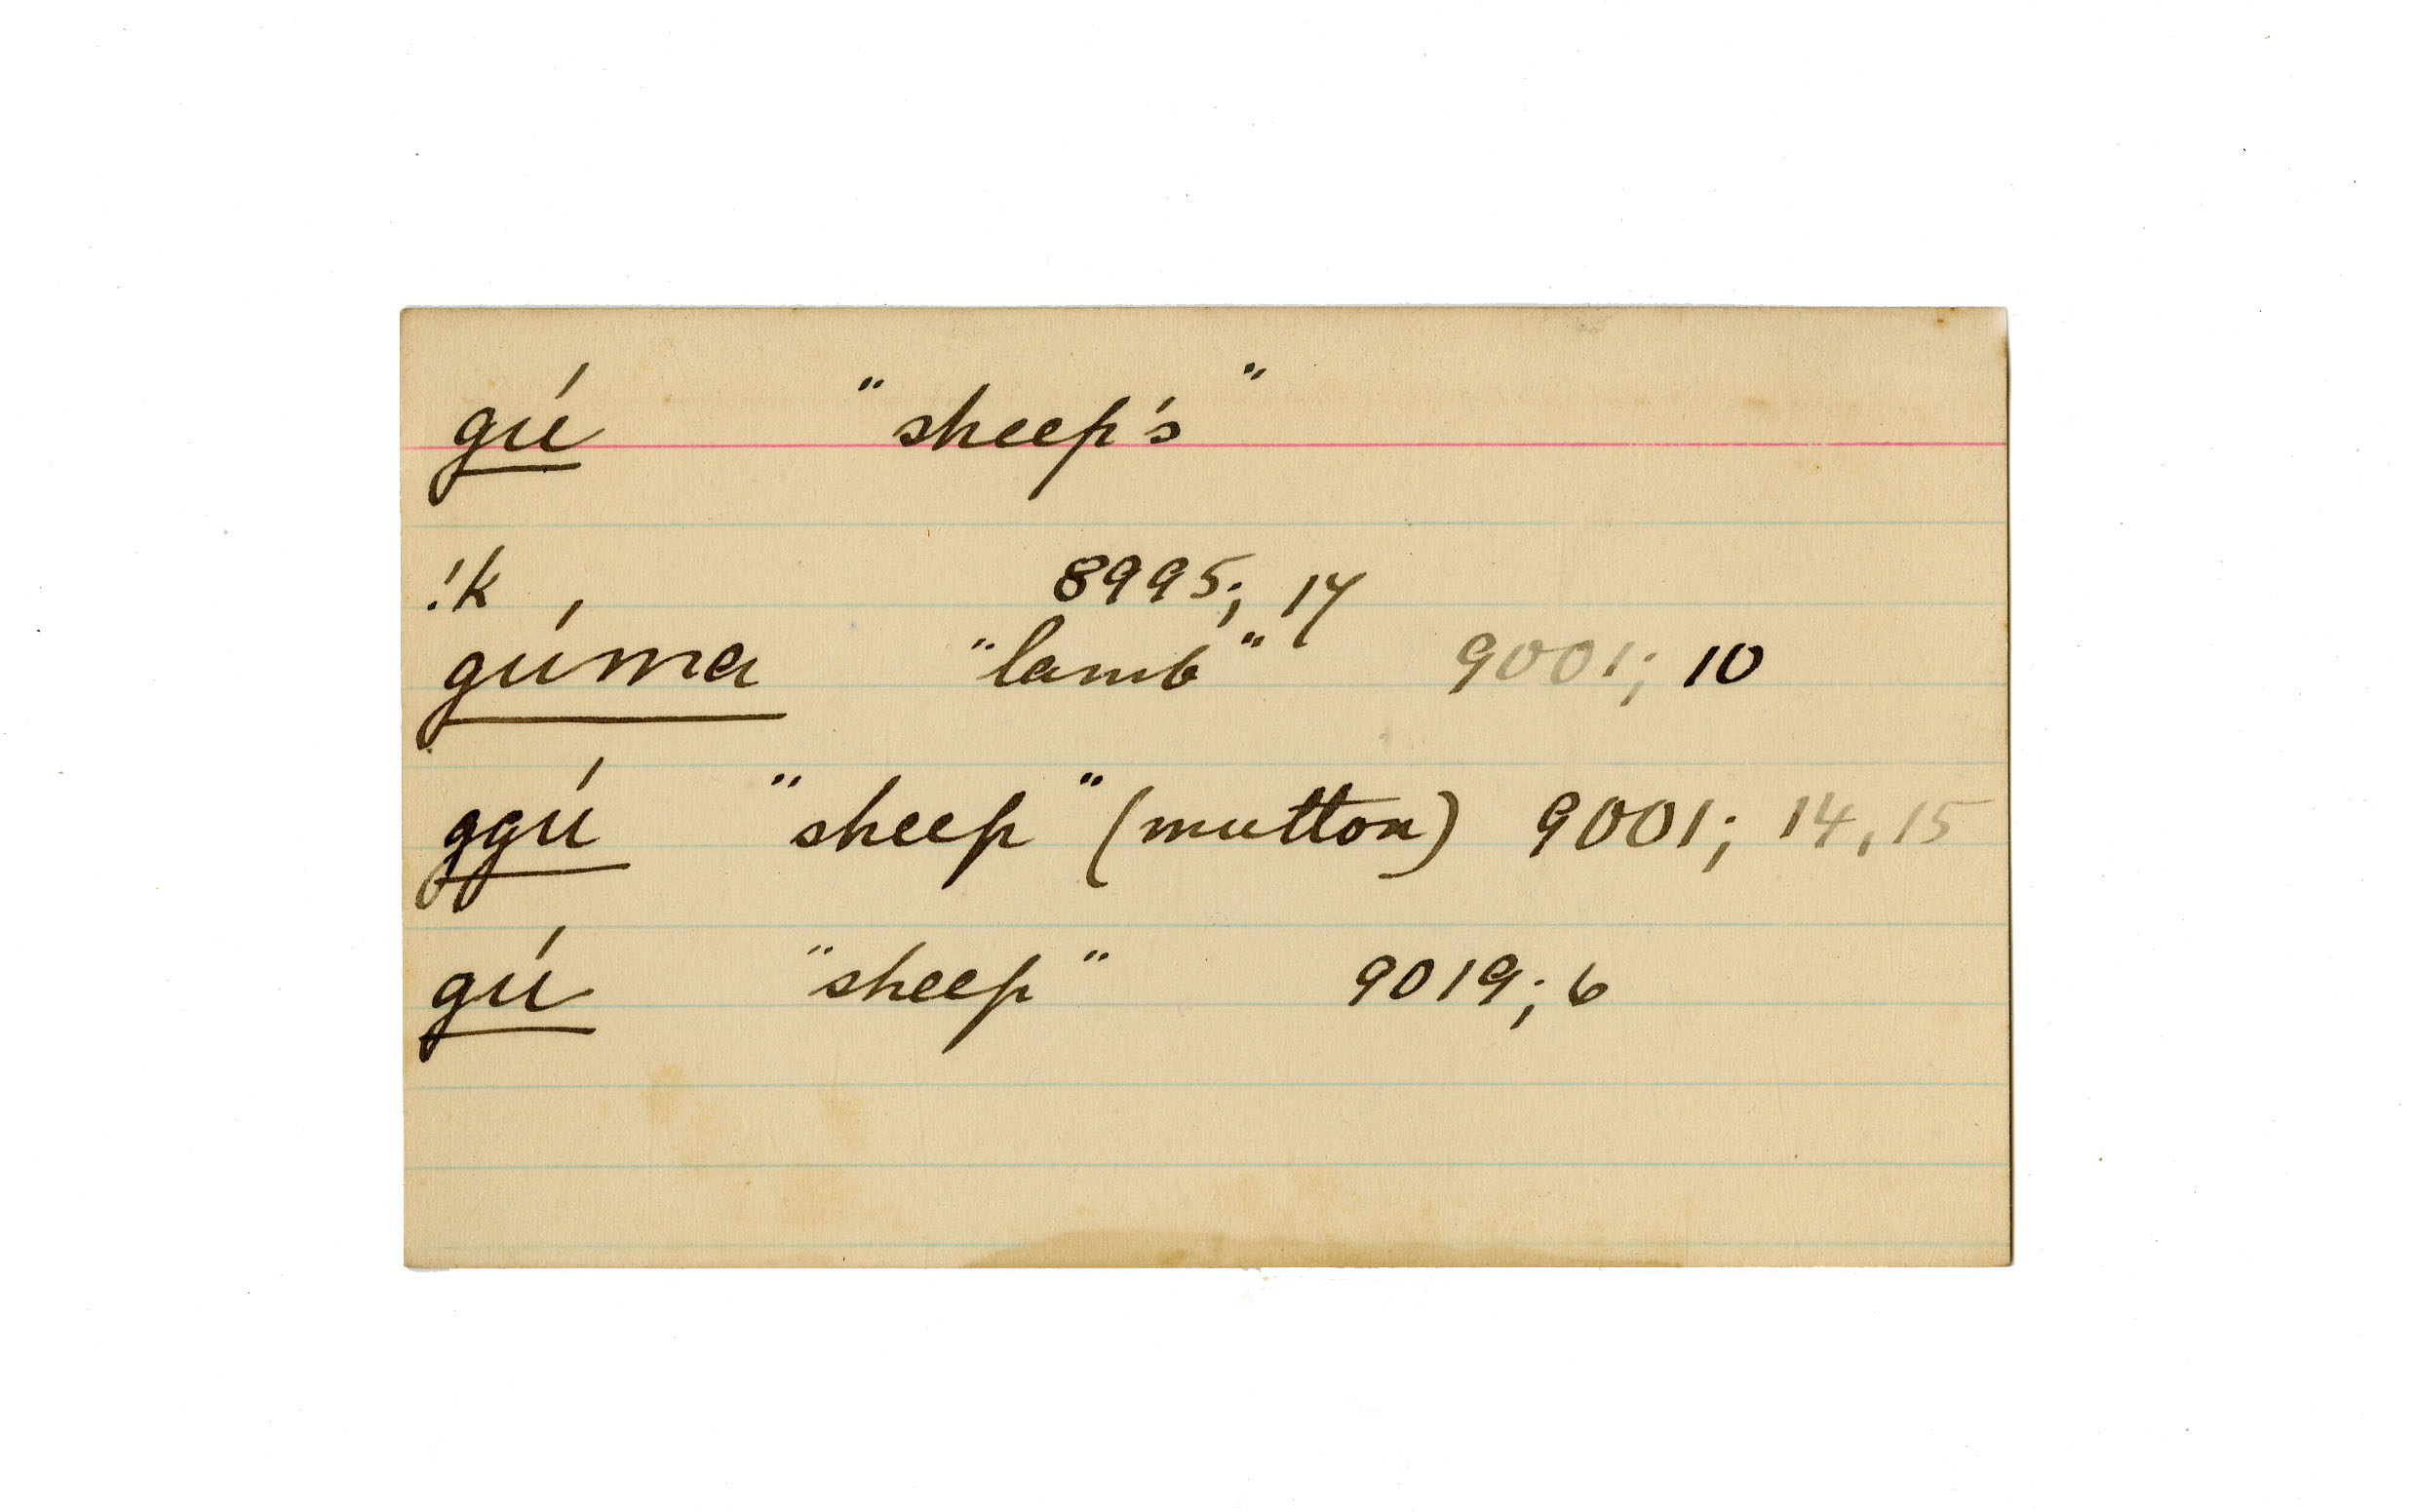 gú "sheep's"
!k 8995; 14
gúma "lamb" 9001; 10
ggú "sheep" (mutton) 9001; 14, 15
gú "sheep" 9019; 6